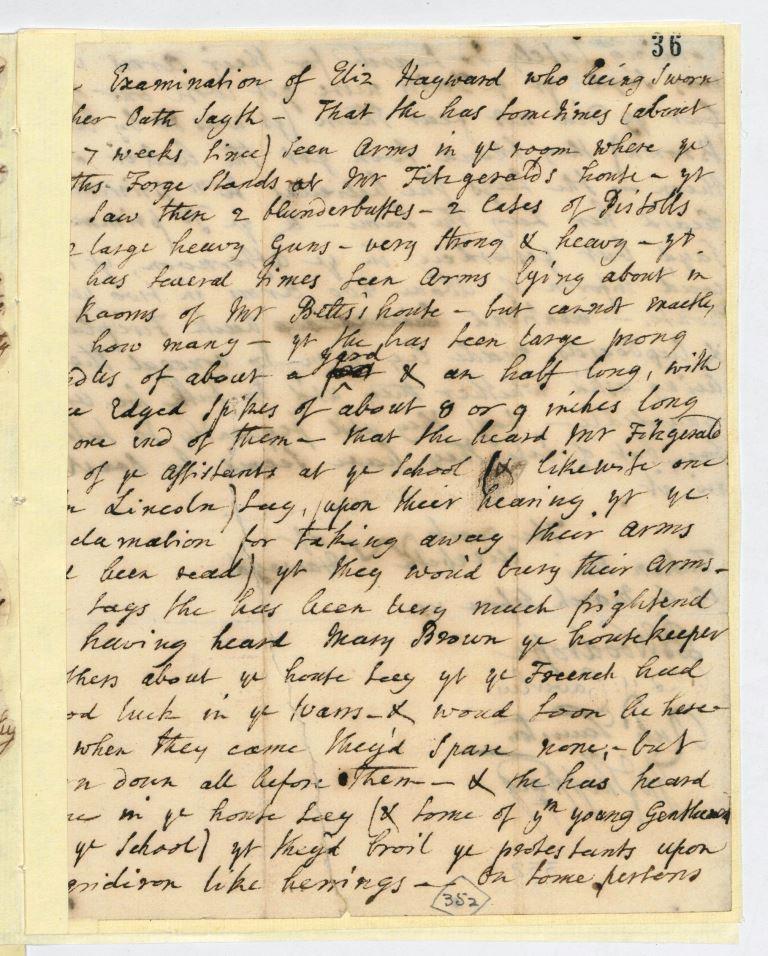 36
Examination of Eliz Hayward who being Sworn
her Oath Sayth - That she has sometimes (about
7 weeks since) seen Arms in ye room where ye
Forge Stands at Mr Fitzgeralds house - yt
Saw then 2 blunderbusses - 2 Cases of Pistolls
2 large heavy Guns - very strong & heavy - yt
has several times seen Arms lying about in
Rooms of Mr Betts's house - but cannot exactly
how many - yt she has seen large prong
dles of about a yard & an half long, with
Edged Spikes of about 8 or 9 inches long
one end of them - that she heard Mr Fitzgerald
of ye Assistants at ye School (& likewise one
Lincoln) Say, (upon their hearing yt ye
clamation for taking away their Arms
been read) yt they would bury their Arms -
says she has been very much frightend
having heard Mary Brown ye housekeeper
thers about ye house say yt ye Freench had
od luck in ye Warrs - & woud soon be here
when they came they'd Spare none, - but
n down all before them - & she has heard
in ye house say (& some of ym young Gentlemen
ye School) yt they'd broil ye protestants upon
gridiron like herrings - On some persons
352